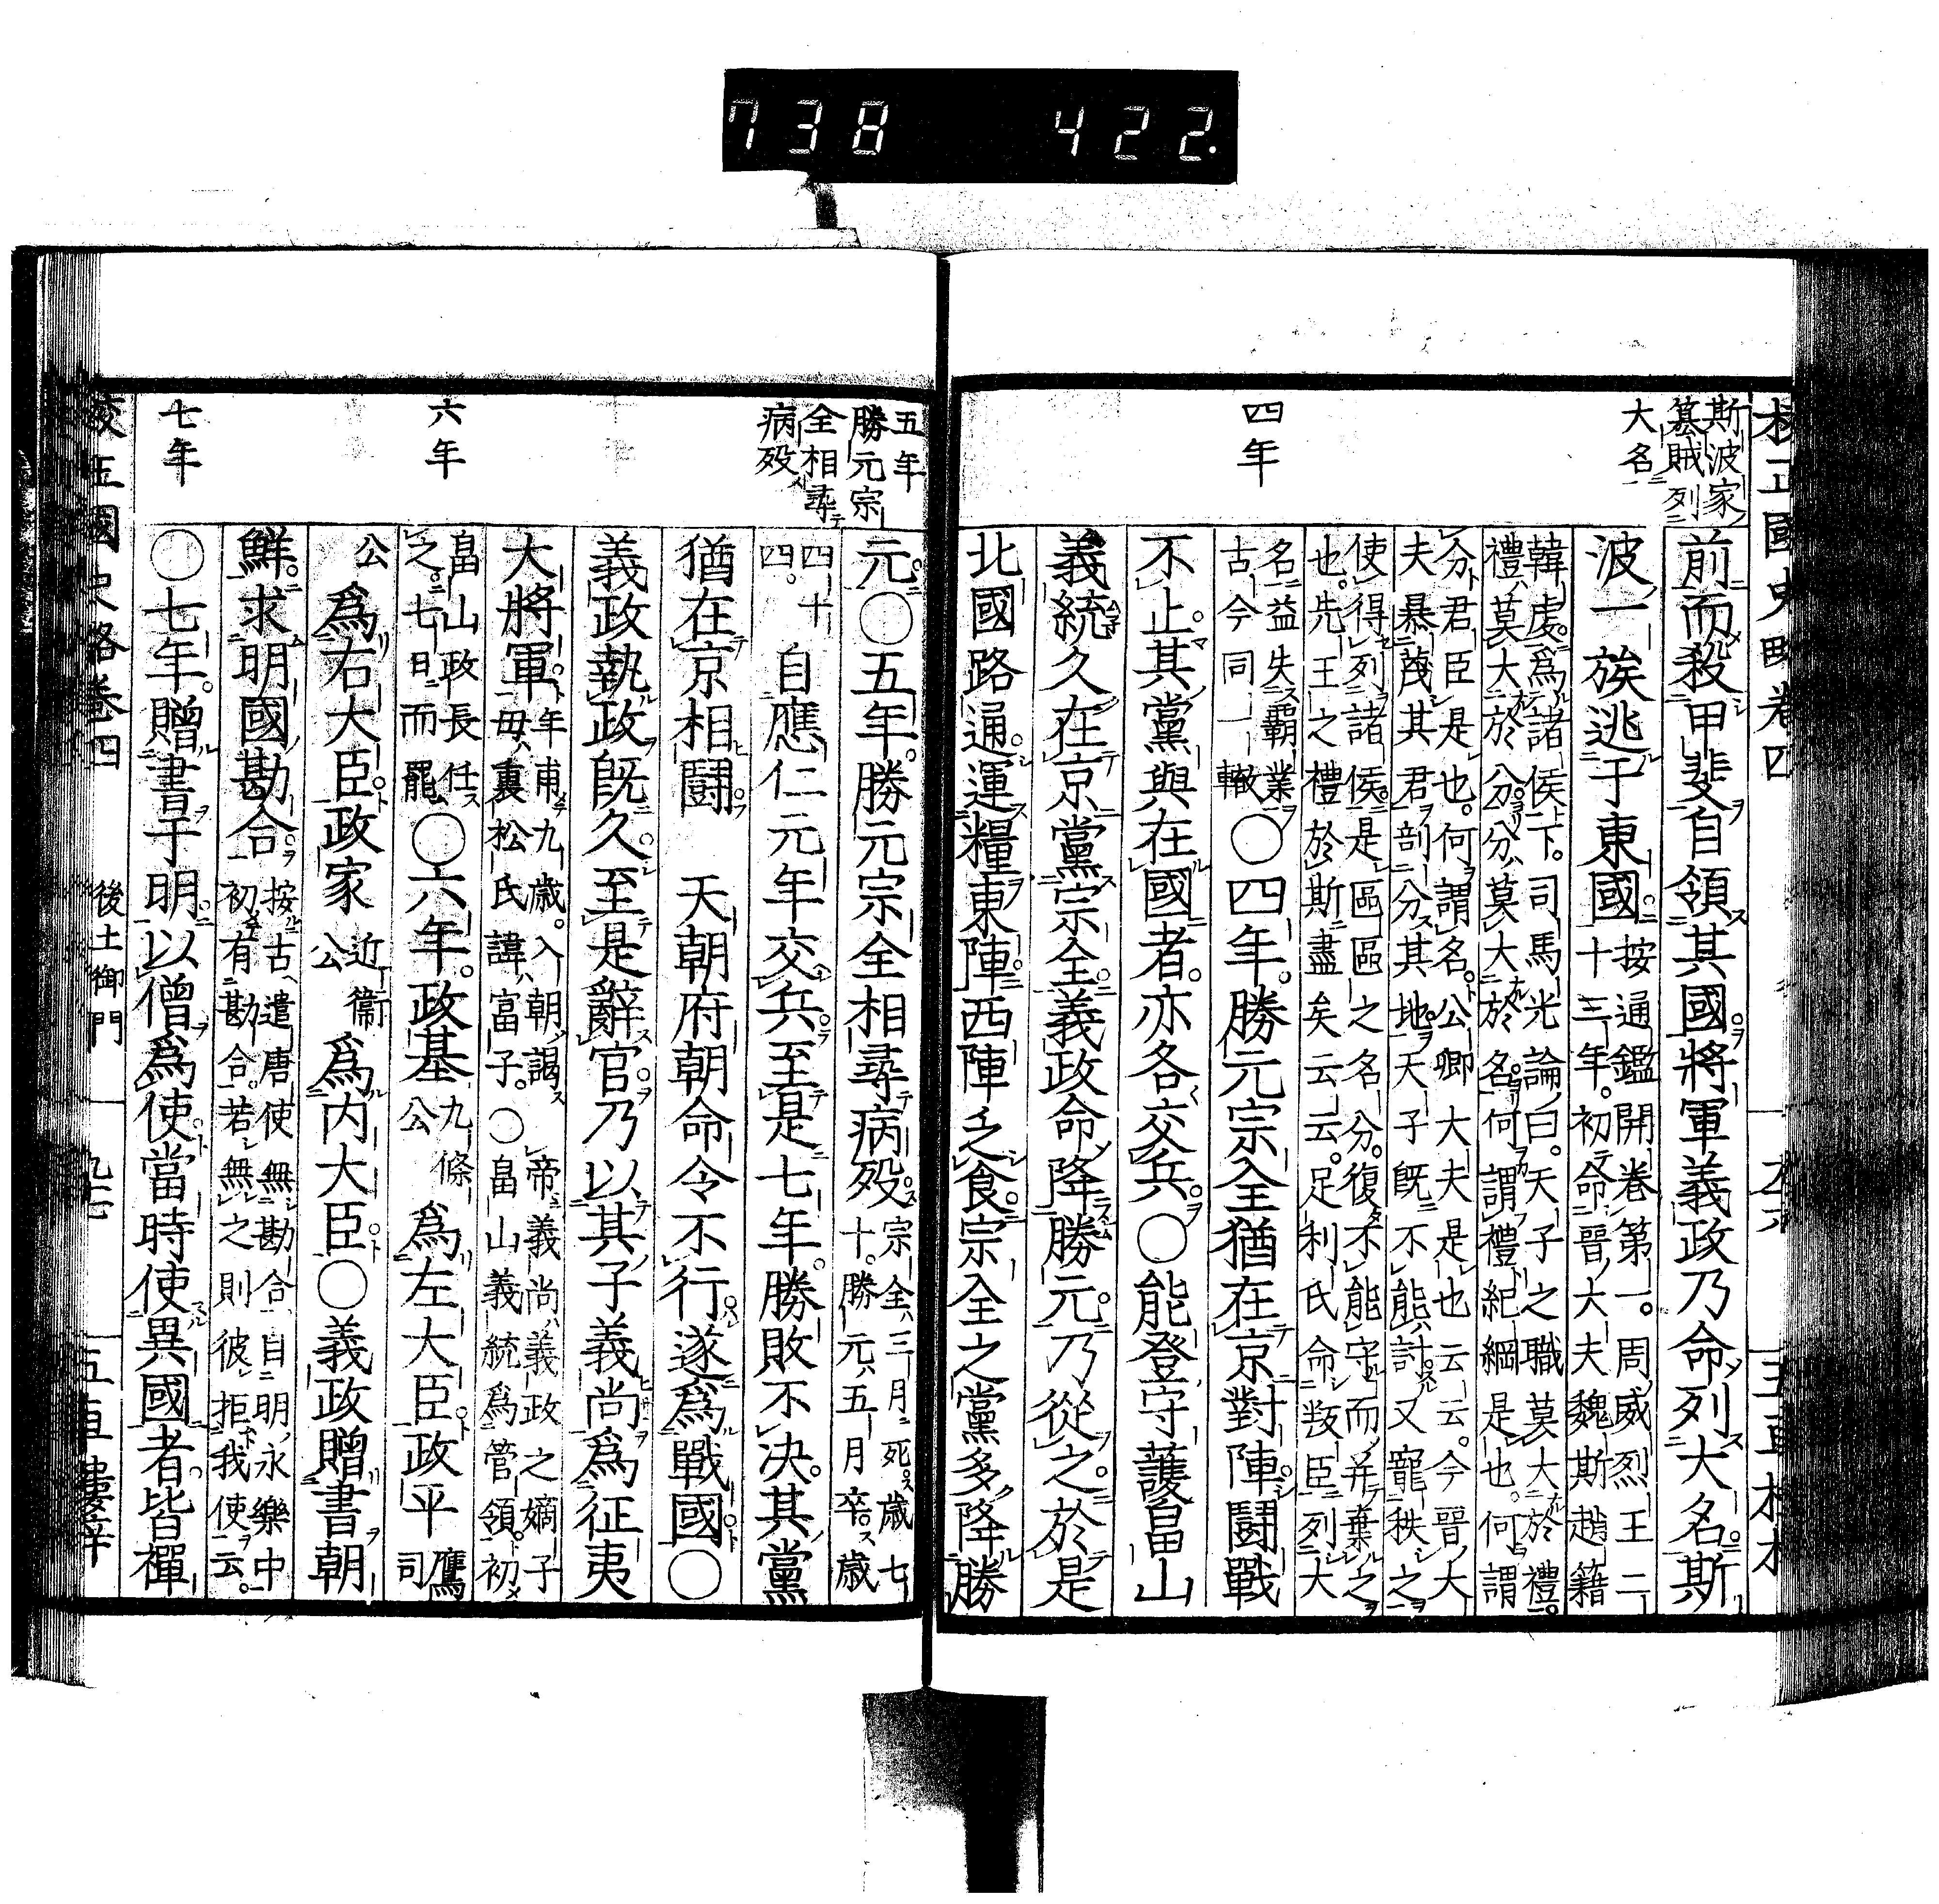 738 422.
斯波家
簒賊列
大名
四年
前而殺甲斐自領其國將軍義政乃命列大名斯
波一族逃于東國 按通鑑開卷第一。周威烈王二
十三年。初命晉大夫魏斯趙籍
韓虔為諸侯下。司馬光論曰。天子之職莫大於禮。
禮莫大於分分莫大於名何謂禮紀綱是也。何謂
分君臣是也。何謂名。公卿大夫是也云云。今晉大
夫暴蔑其君剖分其地天子既不能討又寵秩之
使得列諸侯是區區之名分。復不能守而并棄之
也。先王之禮於斯盡矣云云。足利氏命叛臣列大
名益失覇業
古今同一轍 〇四年。勝元宗全猶在京對陣鬪戰
不止其黨與在國者。亦各交兵〇能登守護畠山
義統久在京黨宗全義政命降勝元。乃從之。於是
北國路通運糧東陣西陣乏食宗全之黨多降勝
五年
勝元宗
全相尋
病歿
六年
七年
元。〇五年。勝元宗全相尋病歿 宗全三月死歲七
十。勝元五月卒歲
四十
四。 自應仁元年交兵至是七年。勝敗不決。其黨
猶在京相鬪 天朝府朝命令不行。遂為戰國〇
義政執政既久至是辭官乃以其子義尚為征夷
大將軍 年甫九歲。入朝謁帝義尚義政之嫡子
母裏松氏諱富子。〇畠山義統為管領初
畠山政長任
之七日而罷 〇六年。政基 九條
公 為左大臣政平 鷹司
公 為右大臣政家 近衞
公 為内大臣〇義政贈書朝
鮮求明國勘合 按古遣唐使無勘合自明永樂中
初有勘合。若無之則彼拒我使云。
〇七年。贈書于明以僧為使當時使異國者皆禪
後土御門